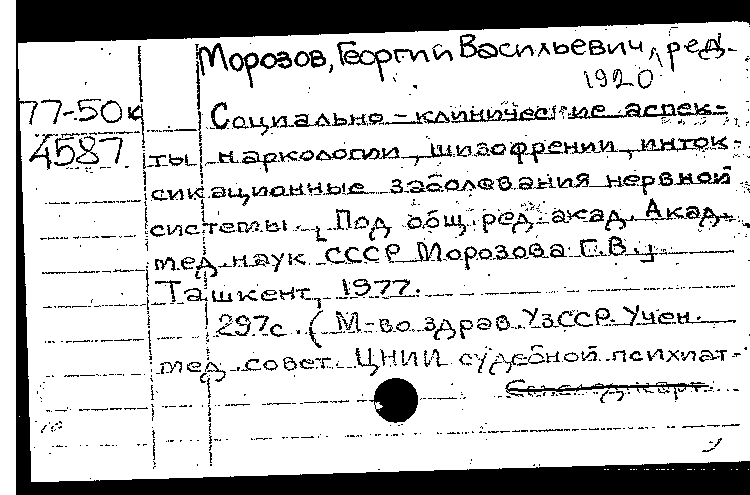 Морозов, Георгий Васильевич, ред.
1920
77-50к
4587
Социально-клинические аспек-
ты наркологии, шизофрении, инток-
сикационные заболевания нервной
системы. [Под общ. ред. акад. Акад.
мед. наук СССР Морозова Г.В.]
Ташкент, 1977.
297с. (М-во здрав. УзССР. Учен.
мед. совет. ЦНИИ судебной психиат-